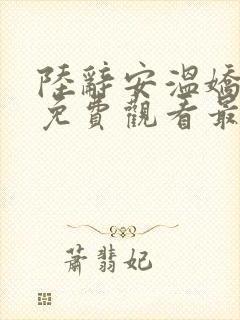 陸辭安溫嬌
免費觀看最
蕭翡妃